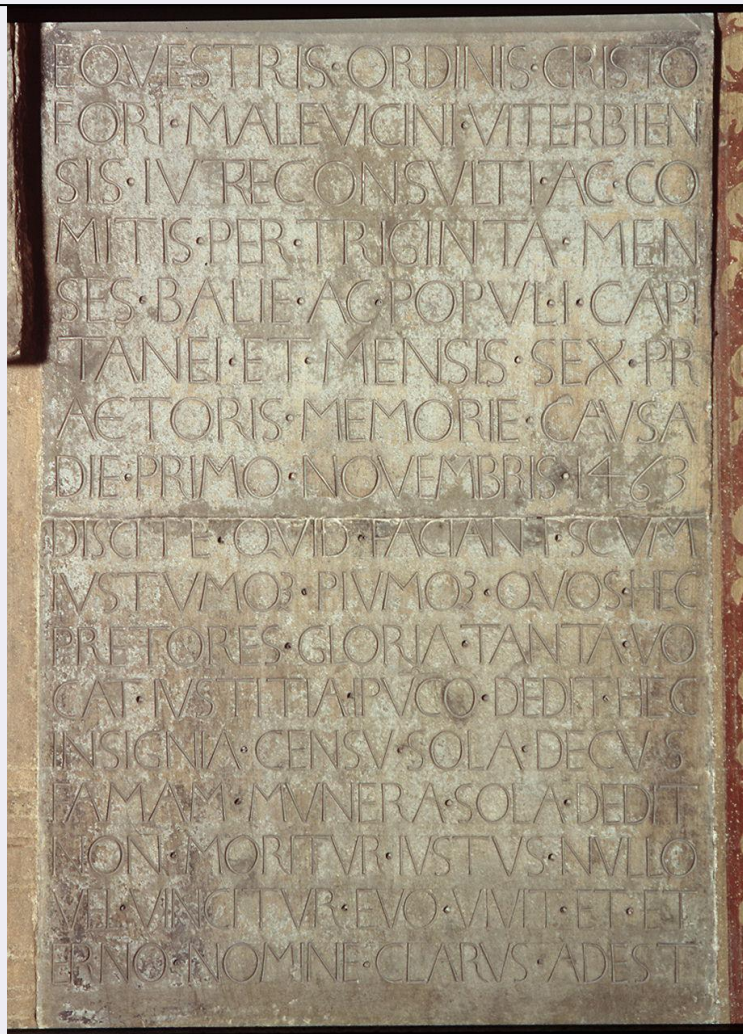 EQVESTRIS·ORDINIS·CRISTO
FORI·MALEVICINI·VITERBIEN
SIS·IVRECONSVLTI·AC·CO
MITIS·PER·TRIGINTA·MEN
SES·BALIE·AC·POPVLI·CAPI
TANEI·ET·MENSIS·SEX·PR
AETORIS·MEMORIE·CAVSA
DIE·PRIMO·NOVEMBRIS·1463
DISCITE·QVID·FACIANT·SCVM
IVSTVMQ3·PIVMQ3·QVOS·HEC
PRETORES·GLORIA·TANTA·VO
CAT·IVSTITIA·PVCO·DEDIT·HEC
INSIGNIA·CENSV·SOLA·DECVS
FAMAM·MVNERA·SOLA·DEDIT
NON·MORITVR·IVSTVS·NVLLO
VEL·VINCITVR·EVO·VIVIT·ET·ET
ERNO·NOMINE·CLARVS·ADEST